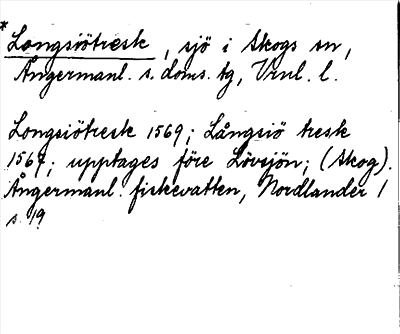 * Longsiötresk, sjö i Skogs sn,
Ångermanl. s. doms. tg, Vnl. l.
Longsiötresk 1569; Långsiö tresk
1567; upptages före Lövsjön; (Skog).
Ångermanl. fiskevatten, Nordlander 1
s. 19